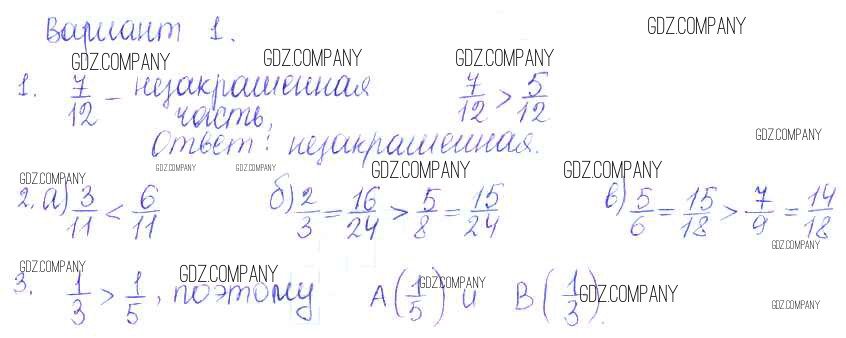 Вариант 1.
GDZ.COMPANY
GDZ.COMPANY GDZ.COMPANY GDZ.COMPANY
1. 7/12 - незакрашенная 7/12 > 5/12
часть,
GDZ.COMPANY
Ответ: незакрашенная.
GDZ.COMPANY GDZ.COMPANY GDZ.COMPANY GDZ.COMPANY GDZ.COMPANY
2. а) 3/11 < 6/11 б) 2/3 = 16/24 > 5/8 = 15/24 в) 5/6 = 15/18 > 7/9 = 14/18
GDZ.COMPANY
GDZ.COMPANY GDZ.COMPANY GDZ.COMPANY GDZ.COMPANY
3. 1/3 > 1/5, поэтому А(1/5) и В(1/3).
GDZ.COMPANY